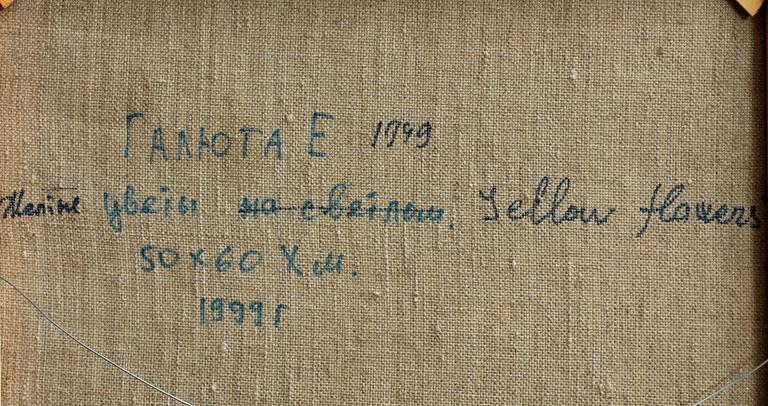 ГАЛЮТА Е 1949
цветы на светлом. Yellow flowers
50x60 Х.м.
1999 г